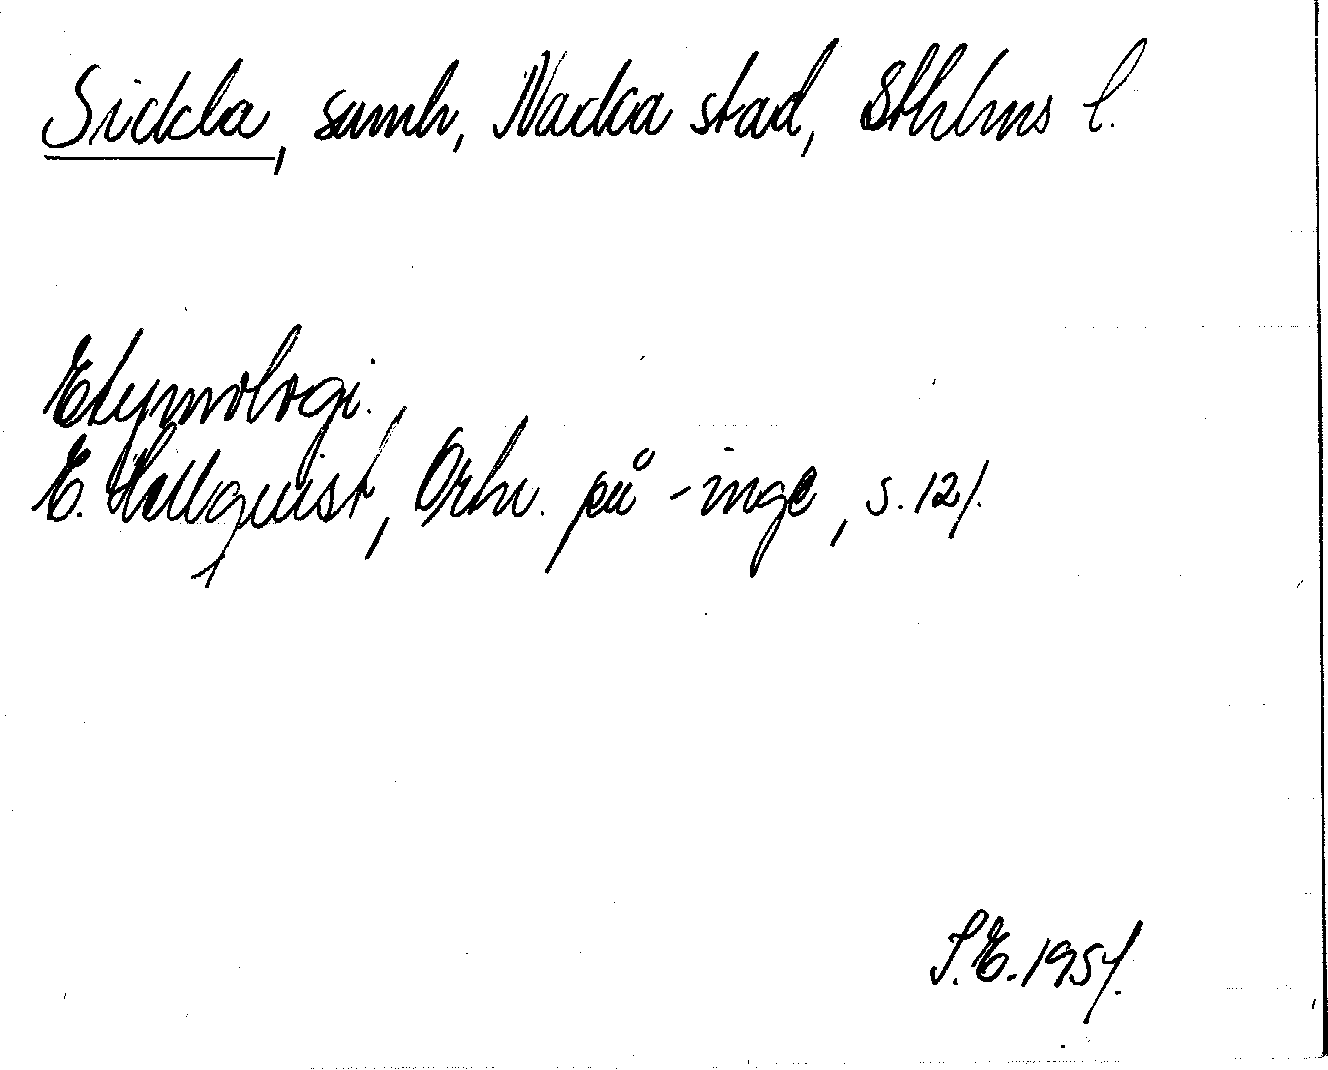 Sickla, samh, Nacka stad, Sthlms l.
Etymologi.
E. Hellquist, Ortn. på -inge, s. 121.
S.E. 1957.